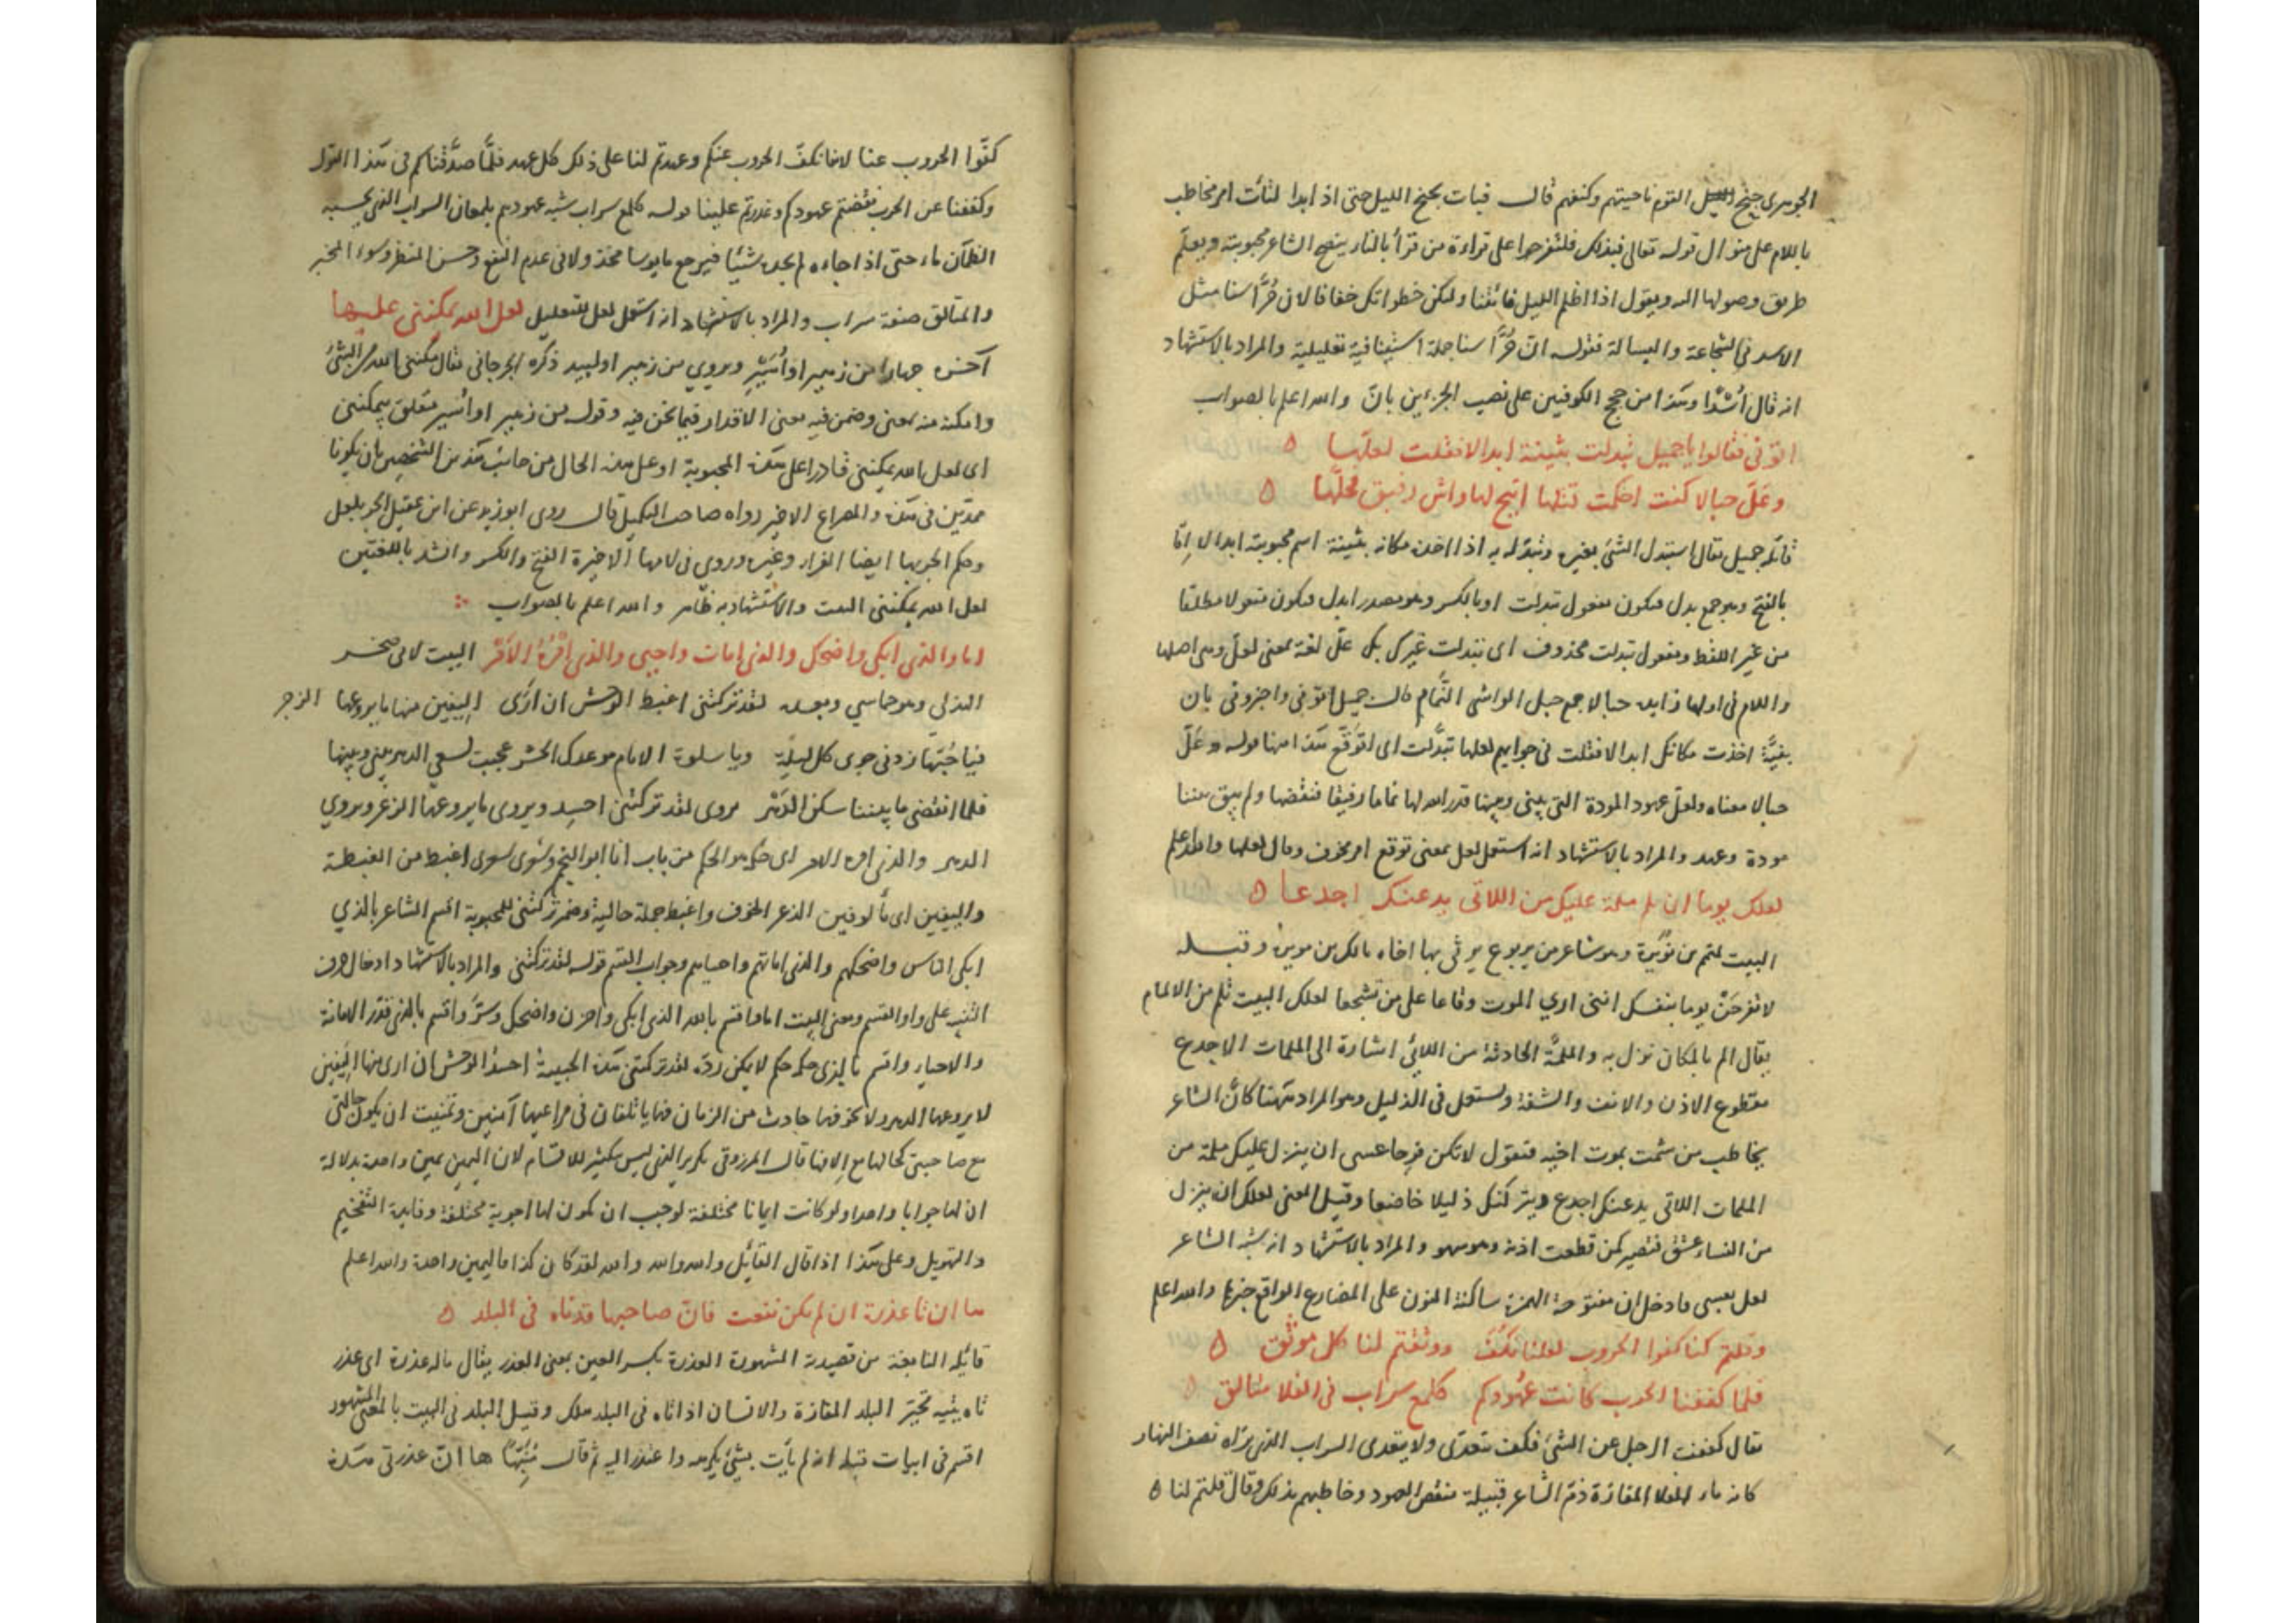 الجوهرى جنح الليل القوم ناحيتهم وكنفهم قال فبات بجنح الليل حتى اذ ابدا لتأت امر مخاطب
باللام على منوال قوله تعالى فبذلك فلتفرحوا على قراءة من قرأ بالتاء ينصح الشاعر محبوبته ويعلم
طريق وصولها اليه ويقول اذا اظلم الليل فائتنا ولتكن خطواتك خفافا لان حُرَّاسنا مثل
الاسد فى الشجاعة والبسالة فقوله انّ حُرَّاسنا جملة استينافية تعليلية والمراد بالاستشهاد
انه قال اُسْدًا وهذا من حجج الكوفيين على نصب الجزءين بانّ والله اعلم بالصواب
اتونى فقالوا يا جميل تبدلت بثينة ابدالا فقلت لعلّها ه
وعَلّ حبالا كنت احكمت فتلها اتيح لها واش رفيق فحلّها ه
قائله جميل يقال استبدل الشئ بغيره وتبدّله به اذا اخذه مكانه بثينة اسم محبوبته ابدالا امّا
بالفتح وهو جمع بدل فيكون مفعول تبدلت او بالكسر وهو مصدر ابدل فيكون مفعولا مطلقا
من غير اللفظ ومفعول تبدلت محذوف اى تبدلت غيرك بك علّ لغة بمعنى لعلّ وهى اصلها
واللام فى اولها زايده حبالا جمع حبل الواشى النَّمام قال جميل اتونى واخبرونى بان
بثينة اخذت مكانك ابدالا فقلت فى جوابهم لعلها تبدّلت اى اتوقّع هذا منها قوله وعَلّ
حبالا معناه ولعلّ عهود المودة التى بينى وبينها قدر الله لها نماما رفيقا فنقضها ولم يبق بيننا
مودة وعهد والمراد بالاستشهاد انه استعمل لعل بمعنى توقع امر مخوف وقال لعلها والله اعلم
لعلك يوما ان تلم ملمة عليك من اللاتى يدعنك اجدعا ه
البيت لمتمم بن نُوَيرة وهو شاعر من يربوع يرثى بها اخاه مالك بن نويرة وقبله
لا تفرحَنْ يوما بنفسك اننى ارى الموت وقاعا على من تشجعا لعلك البيت تلم من الالمام
يقال الم بالمكان نزل به والملمَّة الحادثة من اللائى اشارة الى الملمات الاجدع
مقطوع الاذن والانف والشفة ويستعمل فى الذليل وهو المراد ههنا كانّ الشاعر
يخاطب من شمت بموت اخيه فيقول لا تكن فرحا عسى ان ينزل عليك ملمة من
الملمات اللاتى يدعنك اجدع ويتركنك ذليلا خاضعا وقيل المعنى لعلك ان ينزل
من النساء عشق فتصير كمن قطعت اذنه وهو سهو والمراد بالاستشهاد انه شبّه الشاعر
لعل بعسى فادخل ان مفتوحة الهمزة ساكنة النون على المضارع الواقع خبرها والله اعلم
وقلتم لنا كفوا الحروب لعلنا نكُفّ ووثقتم لنا كل موثق ه
فلما كففنا الحرب كانت عهودكم كلمع سراب فى الفلا متالق ه
يقال كففت الرجل عن الشئ فكف يتعدّى ولا يتعدى السراب الذى تراه نصف النهار
كانه ماء الفلا المفازة ذمّ الشاعر قبيلة بنقض العهود وخاطبهم بذلك وقال قلتم لنا ه
كفّوا الحروب عنا لاننا نكفّ الحروب عنكم وعهدتم لنا على ذلك كل عهد فلمّا صدّقناكم فى هذا القول
وكففنا عن الحرب نقضتم عهودكم وغدرتم علينا قوله كلمع سراب شبه عهودهم بلمعان السراب الذى يحسبه
الظمآن ماء حتى اذا جاءه لم يجده شيئا فيرجع مايوسا مخذولا فى عدم النفع وحسن المنظر وسوء المخبر
والمتالق صفة سراب والمراد بالاستشهاد انه استعمل لعل للتعليل لعل الله يمكننى عليها
آخره جهارا من زهير او اُسَيْد ويروى من زهير او لبيد ذكره الجرجانى يقال مكّننى الله من الشئ
وامكنه منه بمعنى وضمن فيه معنى الاقدار فيما نحن فيه وقوله من زهير او اُسير متعلق بيمكننى
اى لعل الله يمكننى قادرا على هذه المحبوبة او على هذه الحال من جانب هذين الشخصين بان يكونا
ممدّين فى هذه والمصراع الاخير رواه صاحب التكميل قال روى ابو زيد عن ابن عقيل الجر بلعل
وحكم الجر بها ايضا الفراء وغيره وروى فى لامها الاخيرة الفتح والكسر وانشد باللغتين
لعل الله يمكننى البيت والاستشهاد به ظاهر والله اعلم بالصواب
اما والذى ابكى واضحك والذى امات واحيى والذى اَمْرُهُ الاَمْرُ البيت لابى صخر
الهذلى وهو حماسي وبعده لقد تركتنى اغبط الوحش ان ارَى اليفين منها ما يروعها الزجر
فيا حُبّها زدنى جوى كل ليلة ويا سلوة الايام موعدك الحشر عجبت لسعى الدهر بينى وبينها
فلما انقضى ما بيننا سكن الدَهْر يروى لقد تركتنى احسد ويروى ما يروعها الزعر ويروى
الدهر والذى امره الامر اى حكمه هو الحكم من باب انا ابو النجم وشعرى شعرى اغبط من الغبطة
واليفين اى مألوفين الذعر الخوف واغبط جملة حالية وضمير تركتنى للمحبوبة اقسم الشاعر بالذي
ابكى الناس واضحكهم والذى اماتهم واحياهم وجواب القسم قوله لقد تركتنى والمراد بالاستشهاد ادخال حرف
التنبيه على واو القسم ومعنى البيت اما اقسم بالله الذى ابكى واحزن واضحك وسَرَّ واقسم بالذى قدّر الاماتة
والاحياء واقسم بالذى حكمه حكم لا يمكن ردّه لقد تركتنى هذه الحبيبة احسد الوحش ان ارى منها اليفين
لا يروعها الدهر ولا يخوفهما حادث من الزمان فهما يأتلفان فى مراعيهما آمنين وتمنيت ان يكون حالتى
مع صاحبتى كحالهما مع اِلافها قال المرزوقى تكرير الذى ليس بتكثير للاقسام لان اليمين يمين واحدة بدلالة
ان لها جوابا واحدا ولو كانت ايمانا مختلفة لوجب ان تكون لها اجوبة مختلفة وفايدة التفخيم
والتهويل وعلى هذا اذا قال القائل والله والله والله لقد كان كذا فاليمين واحدة والله اعلم
ها ان تا عذرة ان لم تكن نفعت فانّ صاحبها قد تاه فى البلد ه
قائله النابغة من قصيدته المشهورة العذرة بكسر العين بمعنى العذر يقال ماله عذرة اى عذر
تاه يتيه تحيّر البلد المفازة والانسان اذا تاه فى البلد هلك وقيل البلد فى البيت بالمعنى المشهور
اقسم فى ابيات قبله انه لم يأت بشئ يكرهه واعتذر اليه ثم قال مُنَبّهًا ها انّ عذرتى هذه